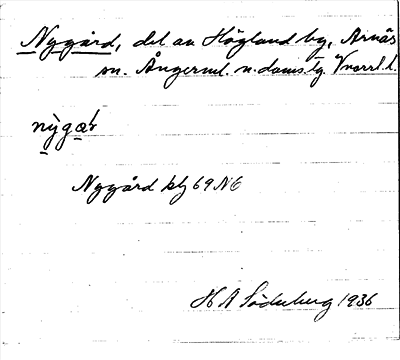 Nygård, del av Högland by, Arnäs
sn. Ångerml. n. doms. tg. Vnorrl. l.
nỳgał
Nygård klj 69 N6
H A Söderberg 1936